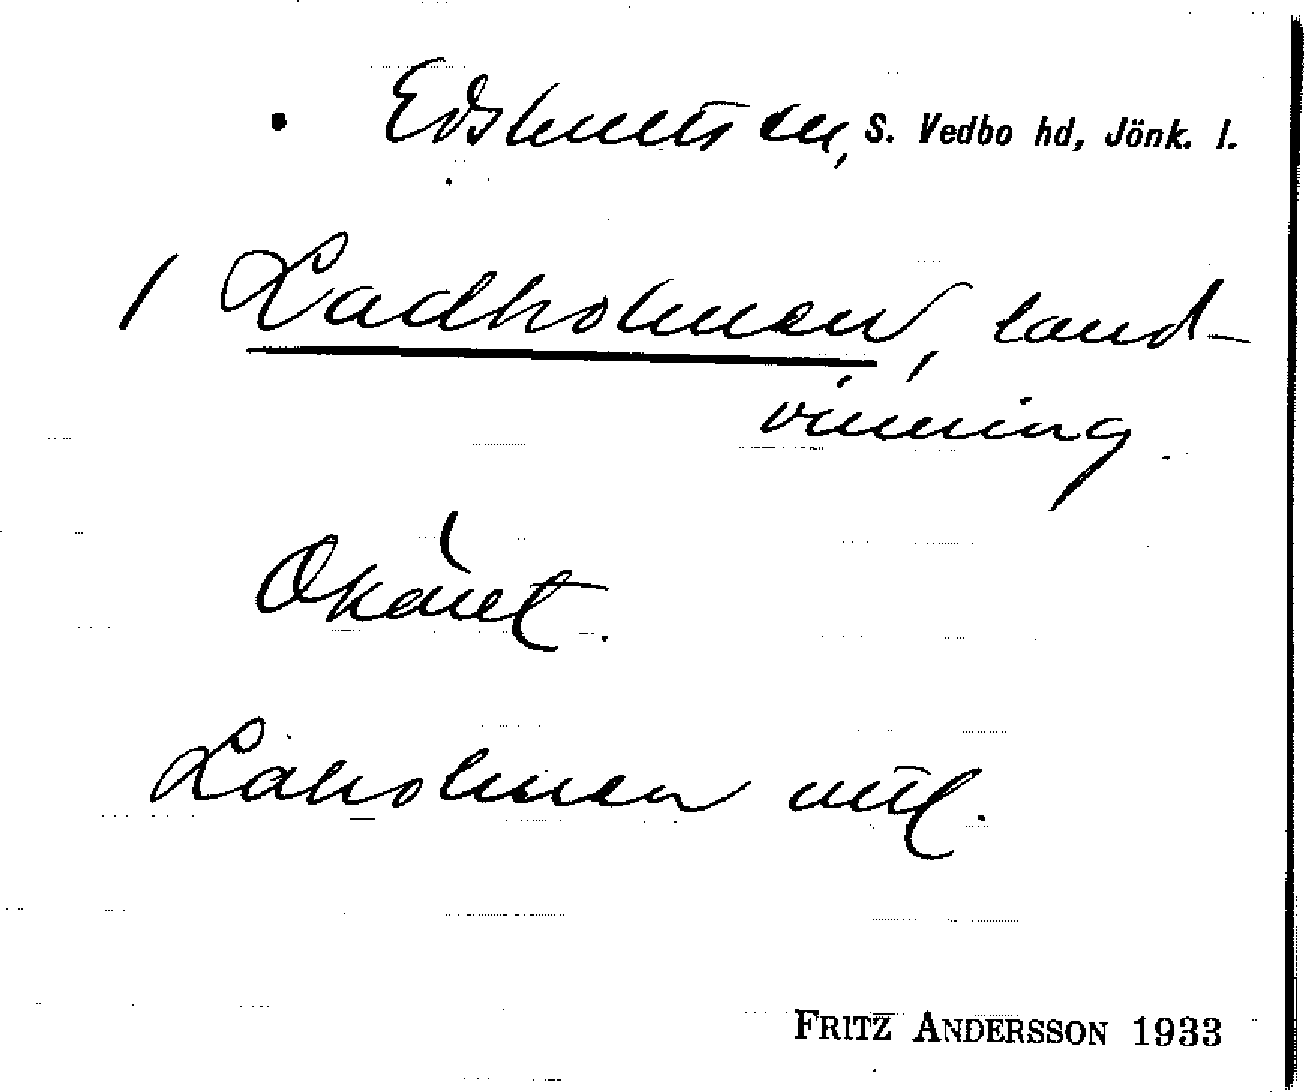 Edshultssn, S. Vedbo hd, Jönk. l.
/ Ladholmen, land-
vinning
Okänt.
Laholmen utt.
FRITZ ANDERSSON 1933